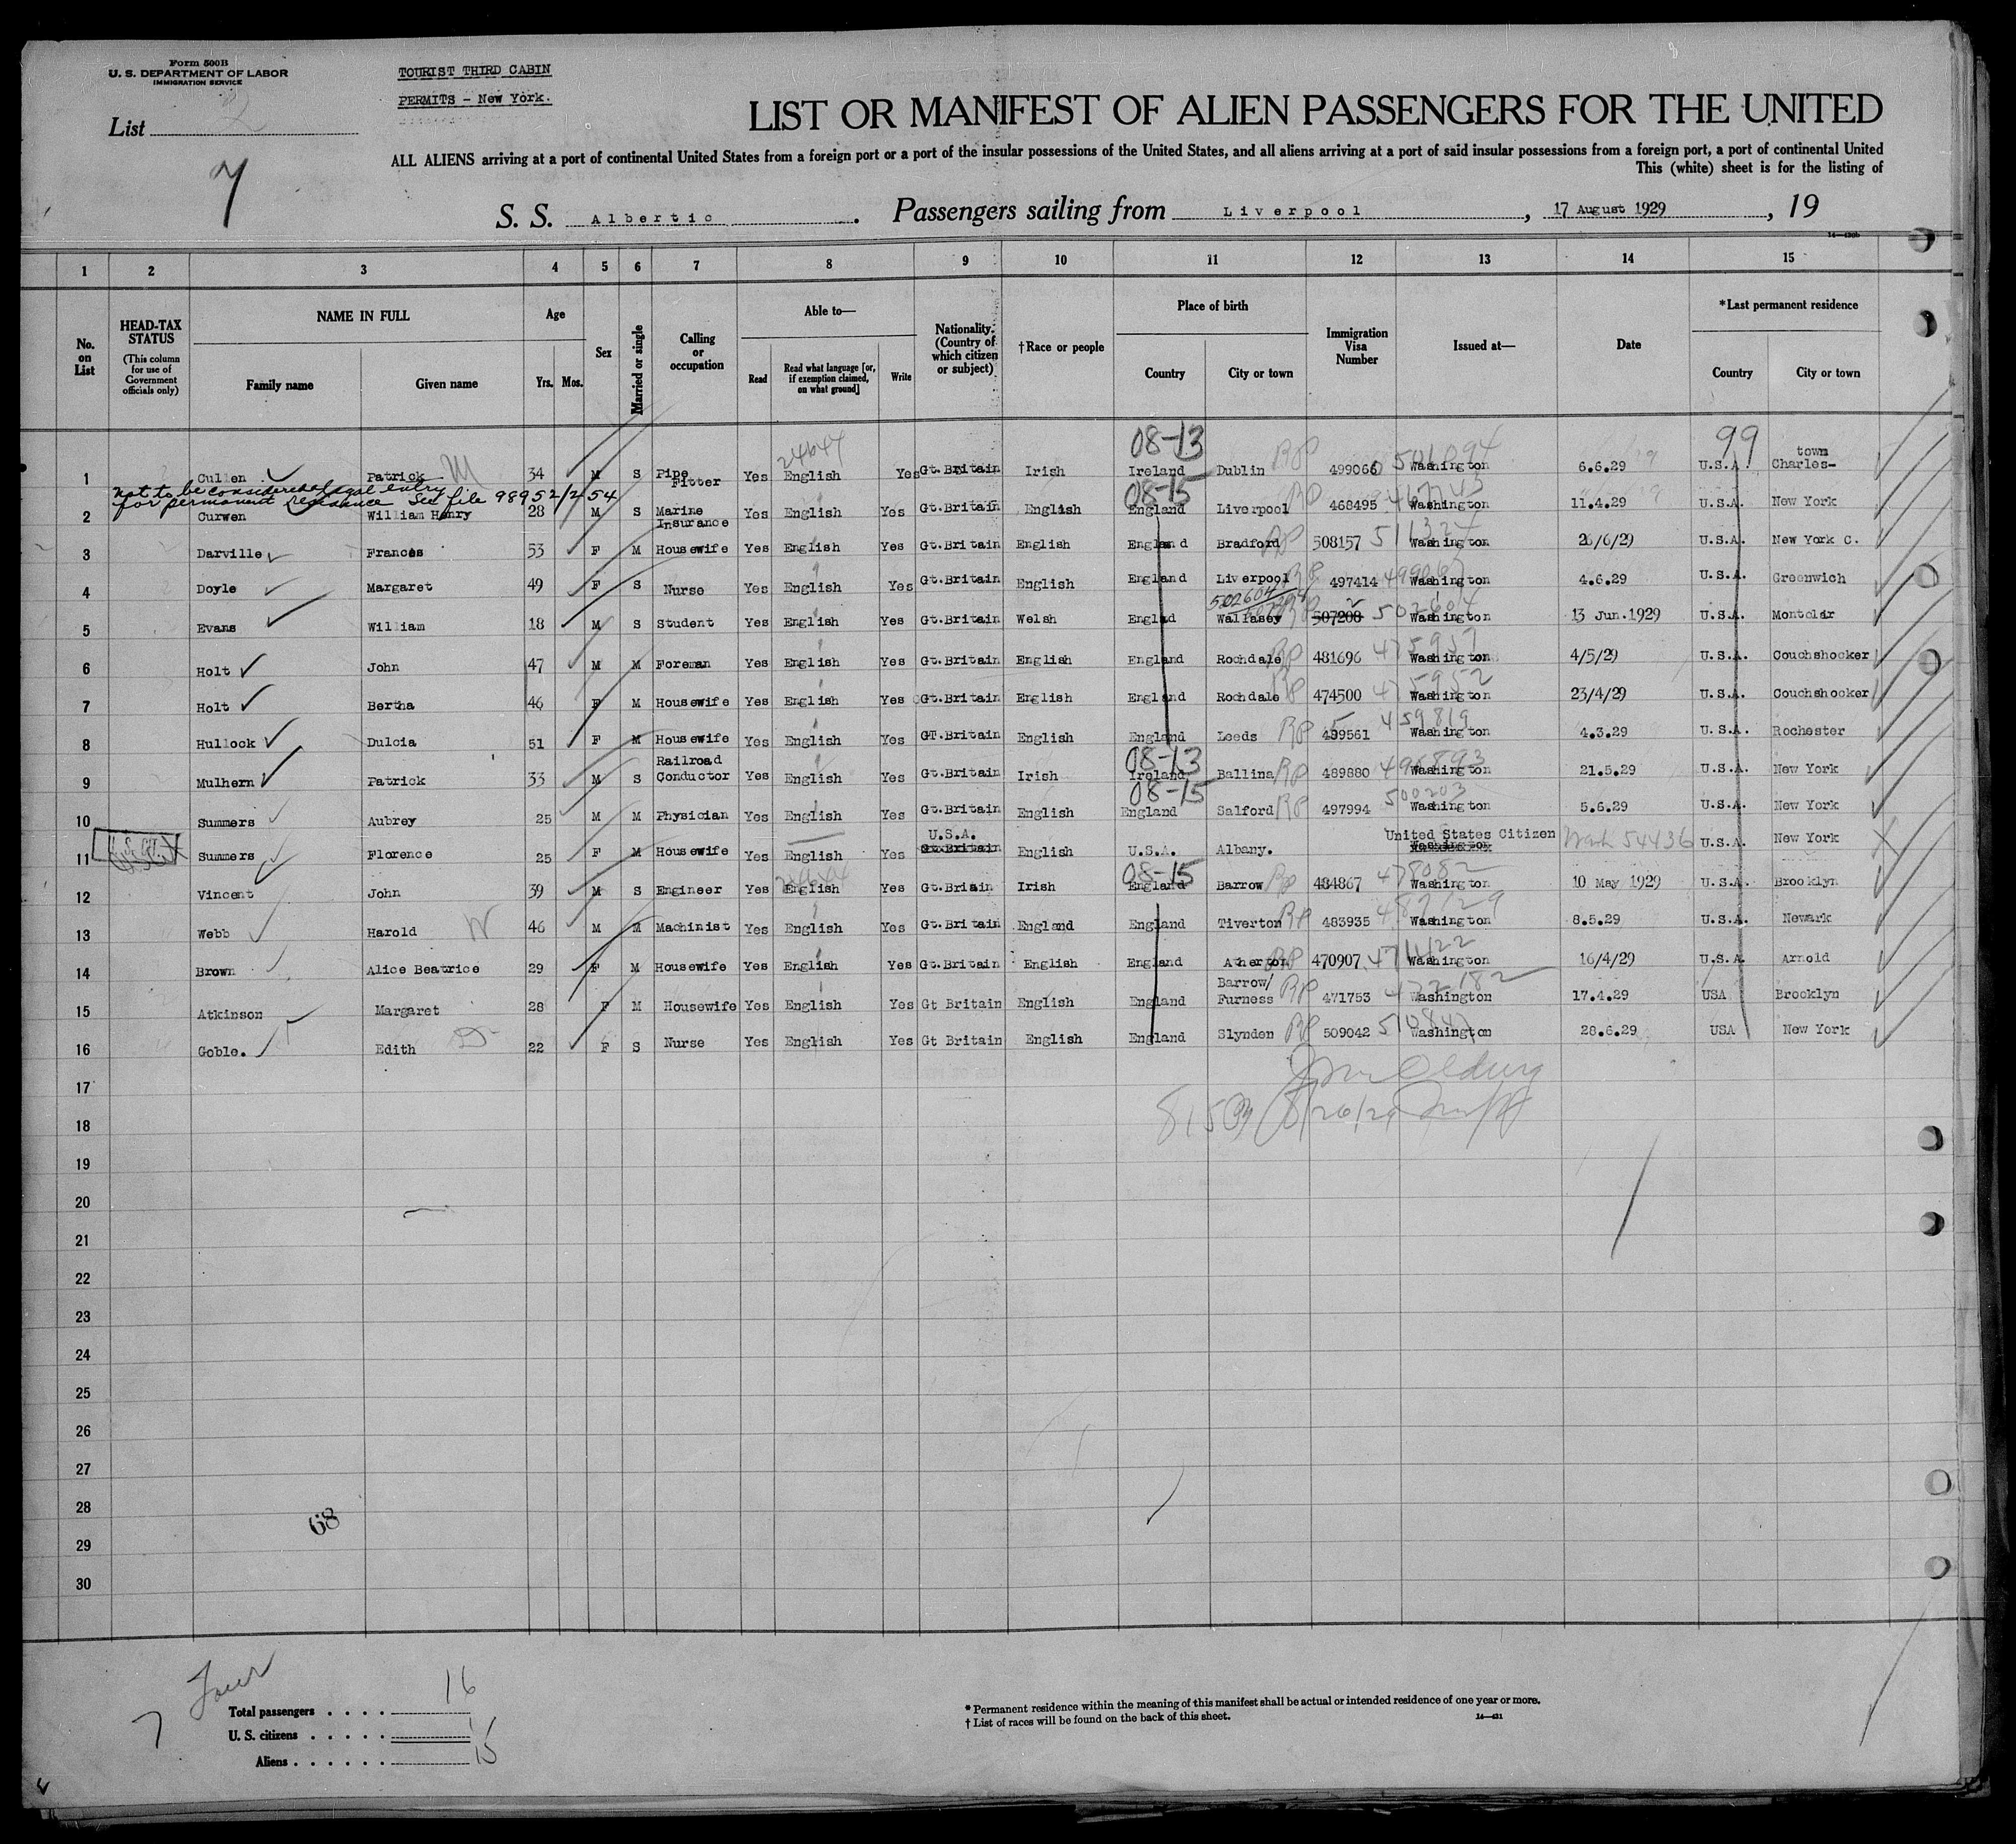 Form 500B
U. S. DEPARTMENT OF LABOR
IMMIGRATION SERVICE
TOURIST THIRD CABIN
PERMITS - New York.
List
7
LIST OR MANIFEST OF ALIEN PASSENGERS FOR THE UNITED
ALL ALIENS arriving at a port of continental United States from a foreign port or a port of the insular possessions of the United States, and all aliens arriving at a port of said insular possessions from a foreign port, a port of continental United
This (white) sheet is for the listing of
S. S. Albertic. Passengers sailing from Liverpool, 17 August 1929, 19
14—420b
1 2 3 4 5 6 7 8 9 10 11 12 13 14 15
No. on List
HEAD-TAX STATUS
(This column for use of Government officials only)
NAME IN FULL
Family name Given name
Age
Yrs. Mos.
Sex
Married or single
Calling or occupation
Able to—
Read
Read what language [or, if exemption claimed, on what ground]
Write
Nationality. (Country of which citizen or subject)
†Race or people
Place of birth
Country City or town
Immigration Visa Number
Issued at—
Date
*Last permanent residence
Country City or town
08-13 99
24644
1 Cullen Patrick M 34 M S Pipe Fitter Yes English Yes Gt.Britain Irish Ireland Dublin RP 499066 501094 Washington 6.6.29 U.S.A. Charles-town
not to be considered legal entry
for permanent residence See file 98952/254
08-15
2 Curwen William Henry 28 M S Marine Insurance Yes English Yes Gt.Britain English England Liverpool RP 468495 467743 Washington 11.4.29 U.S.A. New York
3 Darville Frances 53 F M Housewife Yes English Yes Gt.Britain English England Bradford RP 508157 511324 Washington 26/6/29 U.S.A. New York C.
4 Doyle Margaret 49 F S Nurse Yes English Yes Gt.Britain English England Liverpool RP 497414 499067 Washington 4.6.29 U.S.A. Greenwich
502604
5 Evans William 18 M S Student Yes English Yes Gt.Britain Welsh Englad Wallasey 507208 502604 Washington 13 Jun.1929 U.S.A. Montclar
6 Holt John 47 M M Foreman Yes English Yes Gt.Britain English England Rochdale RP 481696 Washington 4/5/29 U.S.A. Couchshocker
7 Holt Bertha 46 F M Housewife Yes English Yes Gt.Britain English England Rochdale RP 474500 475952 Washington 23/4/29 U.S.A. Couchshocker
8 Hullock Dulcia 51 F M Housewife Yes English Yes GT.Britain English England Leeds RP 459561 459819 Washington 4.3.29 U.S.A. Rochester
08-13
9 Mulhern Patrick 33 M S Railroad Conductor Yes English Yes Gt.Britain Irish Ireland Ballina RP 489880 Washington 21.5.29 U.S.A. New York
08-15
10 Summers Aubrey 25 M M Physician Yes English Yes Gt.Britain English England Salford RP 497994 500203 Washington 5.6.29 U.S.A. New York
U.S. CIT.
11 Summers Florence 25 F M Housewife Yes English Yes U.S.A. Gt.Britain English U.S.A. Albany. United States Citizen Washington Wash 54436 U.S.A. New York
08-15
12 Vincent John 39 M S Engineer Yes English Yes Gt.Briain Irish England Barrow RP 484867 478082 Washington 10 May 1929 U.S.A. Brooklyn
13 Webb Harold W 46 M M Machinist Yes English Yes Gt.Britain England England Tiverton RP 483935 487129 Washington 8.5.29 U.S.A. Newark
14 Brown Alice Beatrice 29 F M Housewife Yes English Yes Gt.Britain English England Atherton RP 470907 471422 Washington 16/4/29 U.S.A. Arnold
15 Atkinson Margaret 28 F M Housewife Yes English Yes Gt Britain English England Barrow/ Furness RP 471753 472182 Washington 17.4.29 USA Brooklyn
16 Goble. Edith 22 F S Nurse Yes English Yes Gt Britain English England Slynden RP 509042 510847 Washington 28.6.29 USA New York
17
18
19
20
21
22
23
24
25
26
27
28
29
30
68
Four
7
Total passengers . . . . 16
U. S. citizens . . . . . 1
Aliens . . . . . . 15
* Permanent residence within the meaning of this manifest shall be actual or intended residence of one year or more.
† List of races will be found on the back of this sheet.
14—421